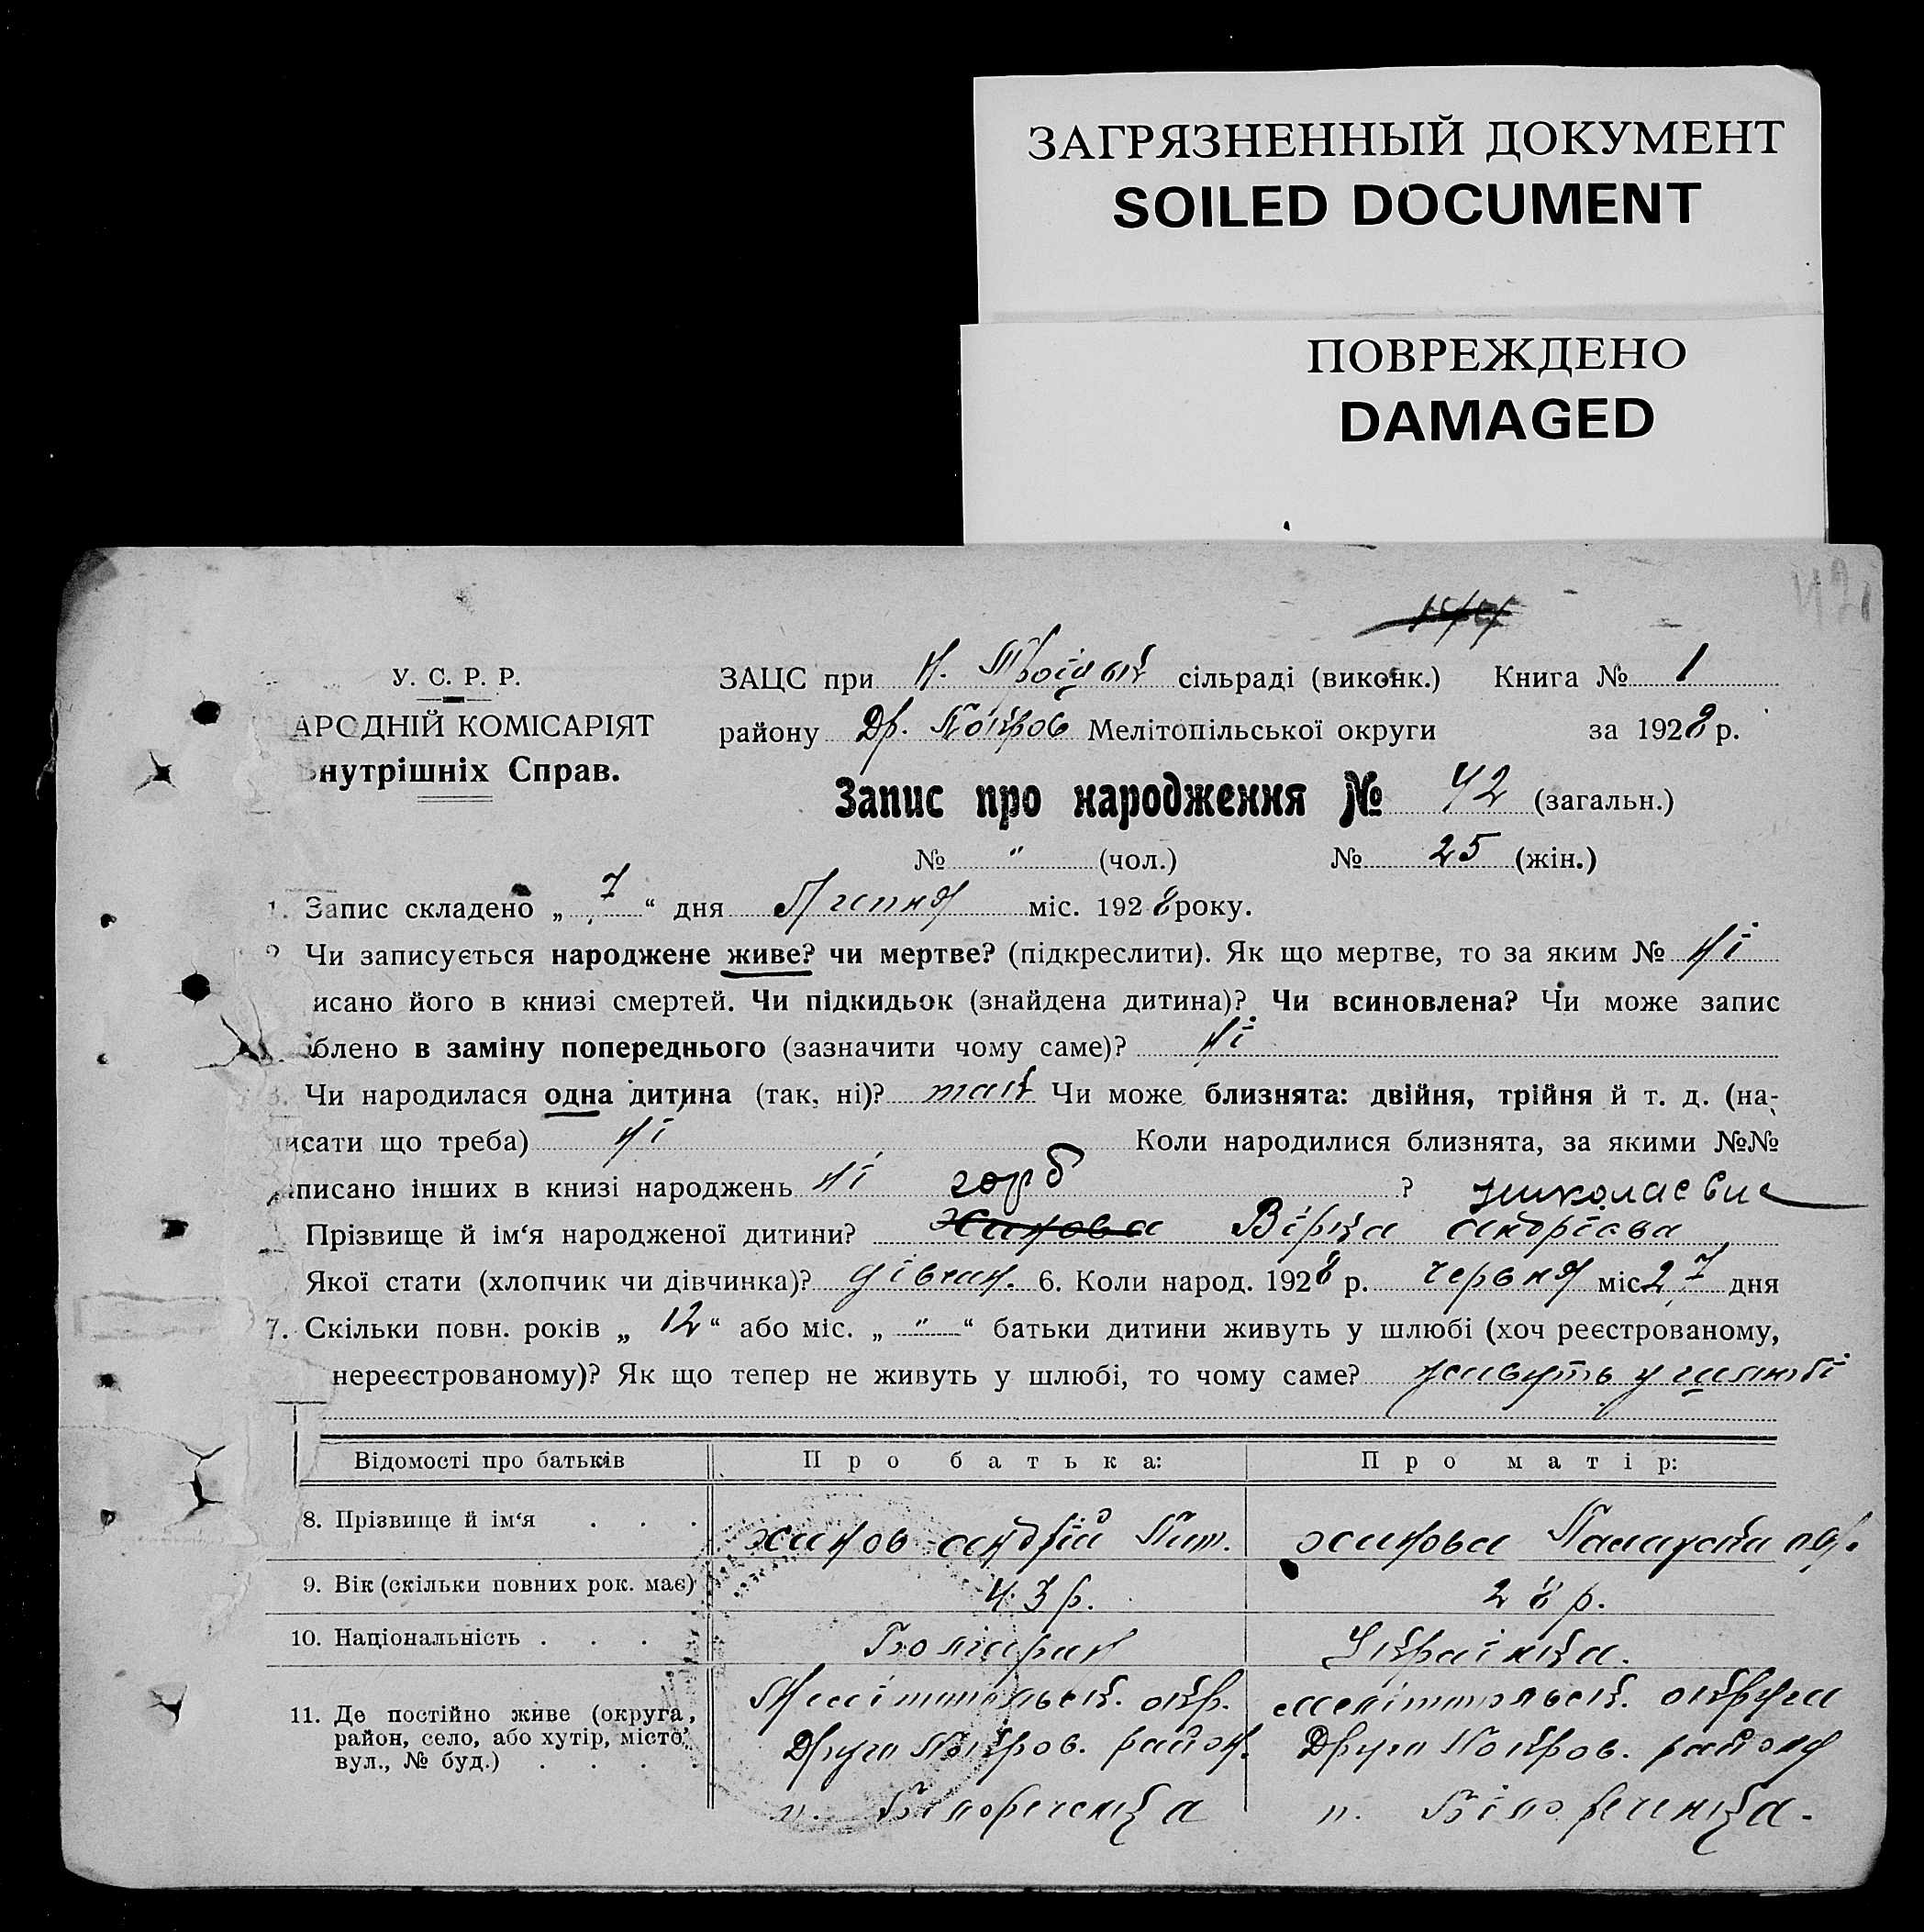 ЗАГРЯЗНЕННЫЙ ДОКУМЕНТ
SOILED DOCUMENT
ПОВРЕЖДЕНО
DAMAGED
42
У. С. Р. Р.
АРОДНІЙ КОМІСАРІЯТ
нутрішніх Справ.
ЗАЦС при Н. Троїцьк сільраді (виконк.) Книга № 1
району Др. Покров Мелітопільської округи за 1928 р.
Запис про народження № 42 (загальн.)
№ " (чол.) № 25 (жін.)
1. Запис складено „ 7 “ дня Липня міс. 1928 року.
2 Чи записується народжене живе? чи мертве? (підкреслити). Як що мертве, то за яким № ні
исано його в книзі смертей. Чи підкидьок (знайдена дитина)? Чи всиновлена? Чи може запис
блено в заміну попереднього (зазначити чому саме)? ні
3. Чи народилася одна дитина (так, ні)? так Чи може близнята: двійня, трійня й т. д. (на-
писати що треба) ні Коли народилися близнята, за якими №№
писано інших в книзі народжень ні ?
горб
Прізвище й ім‘я народженої дитини? Жикова Вірка Андрієва
Якої стати (хлопчик чи дівчинка)? дівчин. 6. Коли народ. 1928 р. червня міс 27 дня
7. Скільки повн. років „ 12 “ або міс. „ " “ батьки дитини живуть у шлюбі (хоч реєстрованому,
нереєстрованому)? Як що тепер не живуть у шлюбі, то чому саме? живуть у шлюбі
Відомості про батьків Про батька: Про матір:
8. Прізвище й ім‘я . . . Андрій
9. Вік (скільки повних рок. має) 43 р. 28 р.
10. Національність . . . . Болгарин Українка.
11. Де постійно живе (округа, район, село, або хутір, місто, вул., № буд.) . . . .
Мелітопольськ. окр. Мелітопольськ. округи
Друго Покров. район. Друго Покров. району
п. Білоречецка п. Білоречецка.